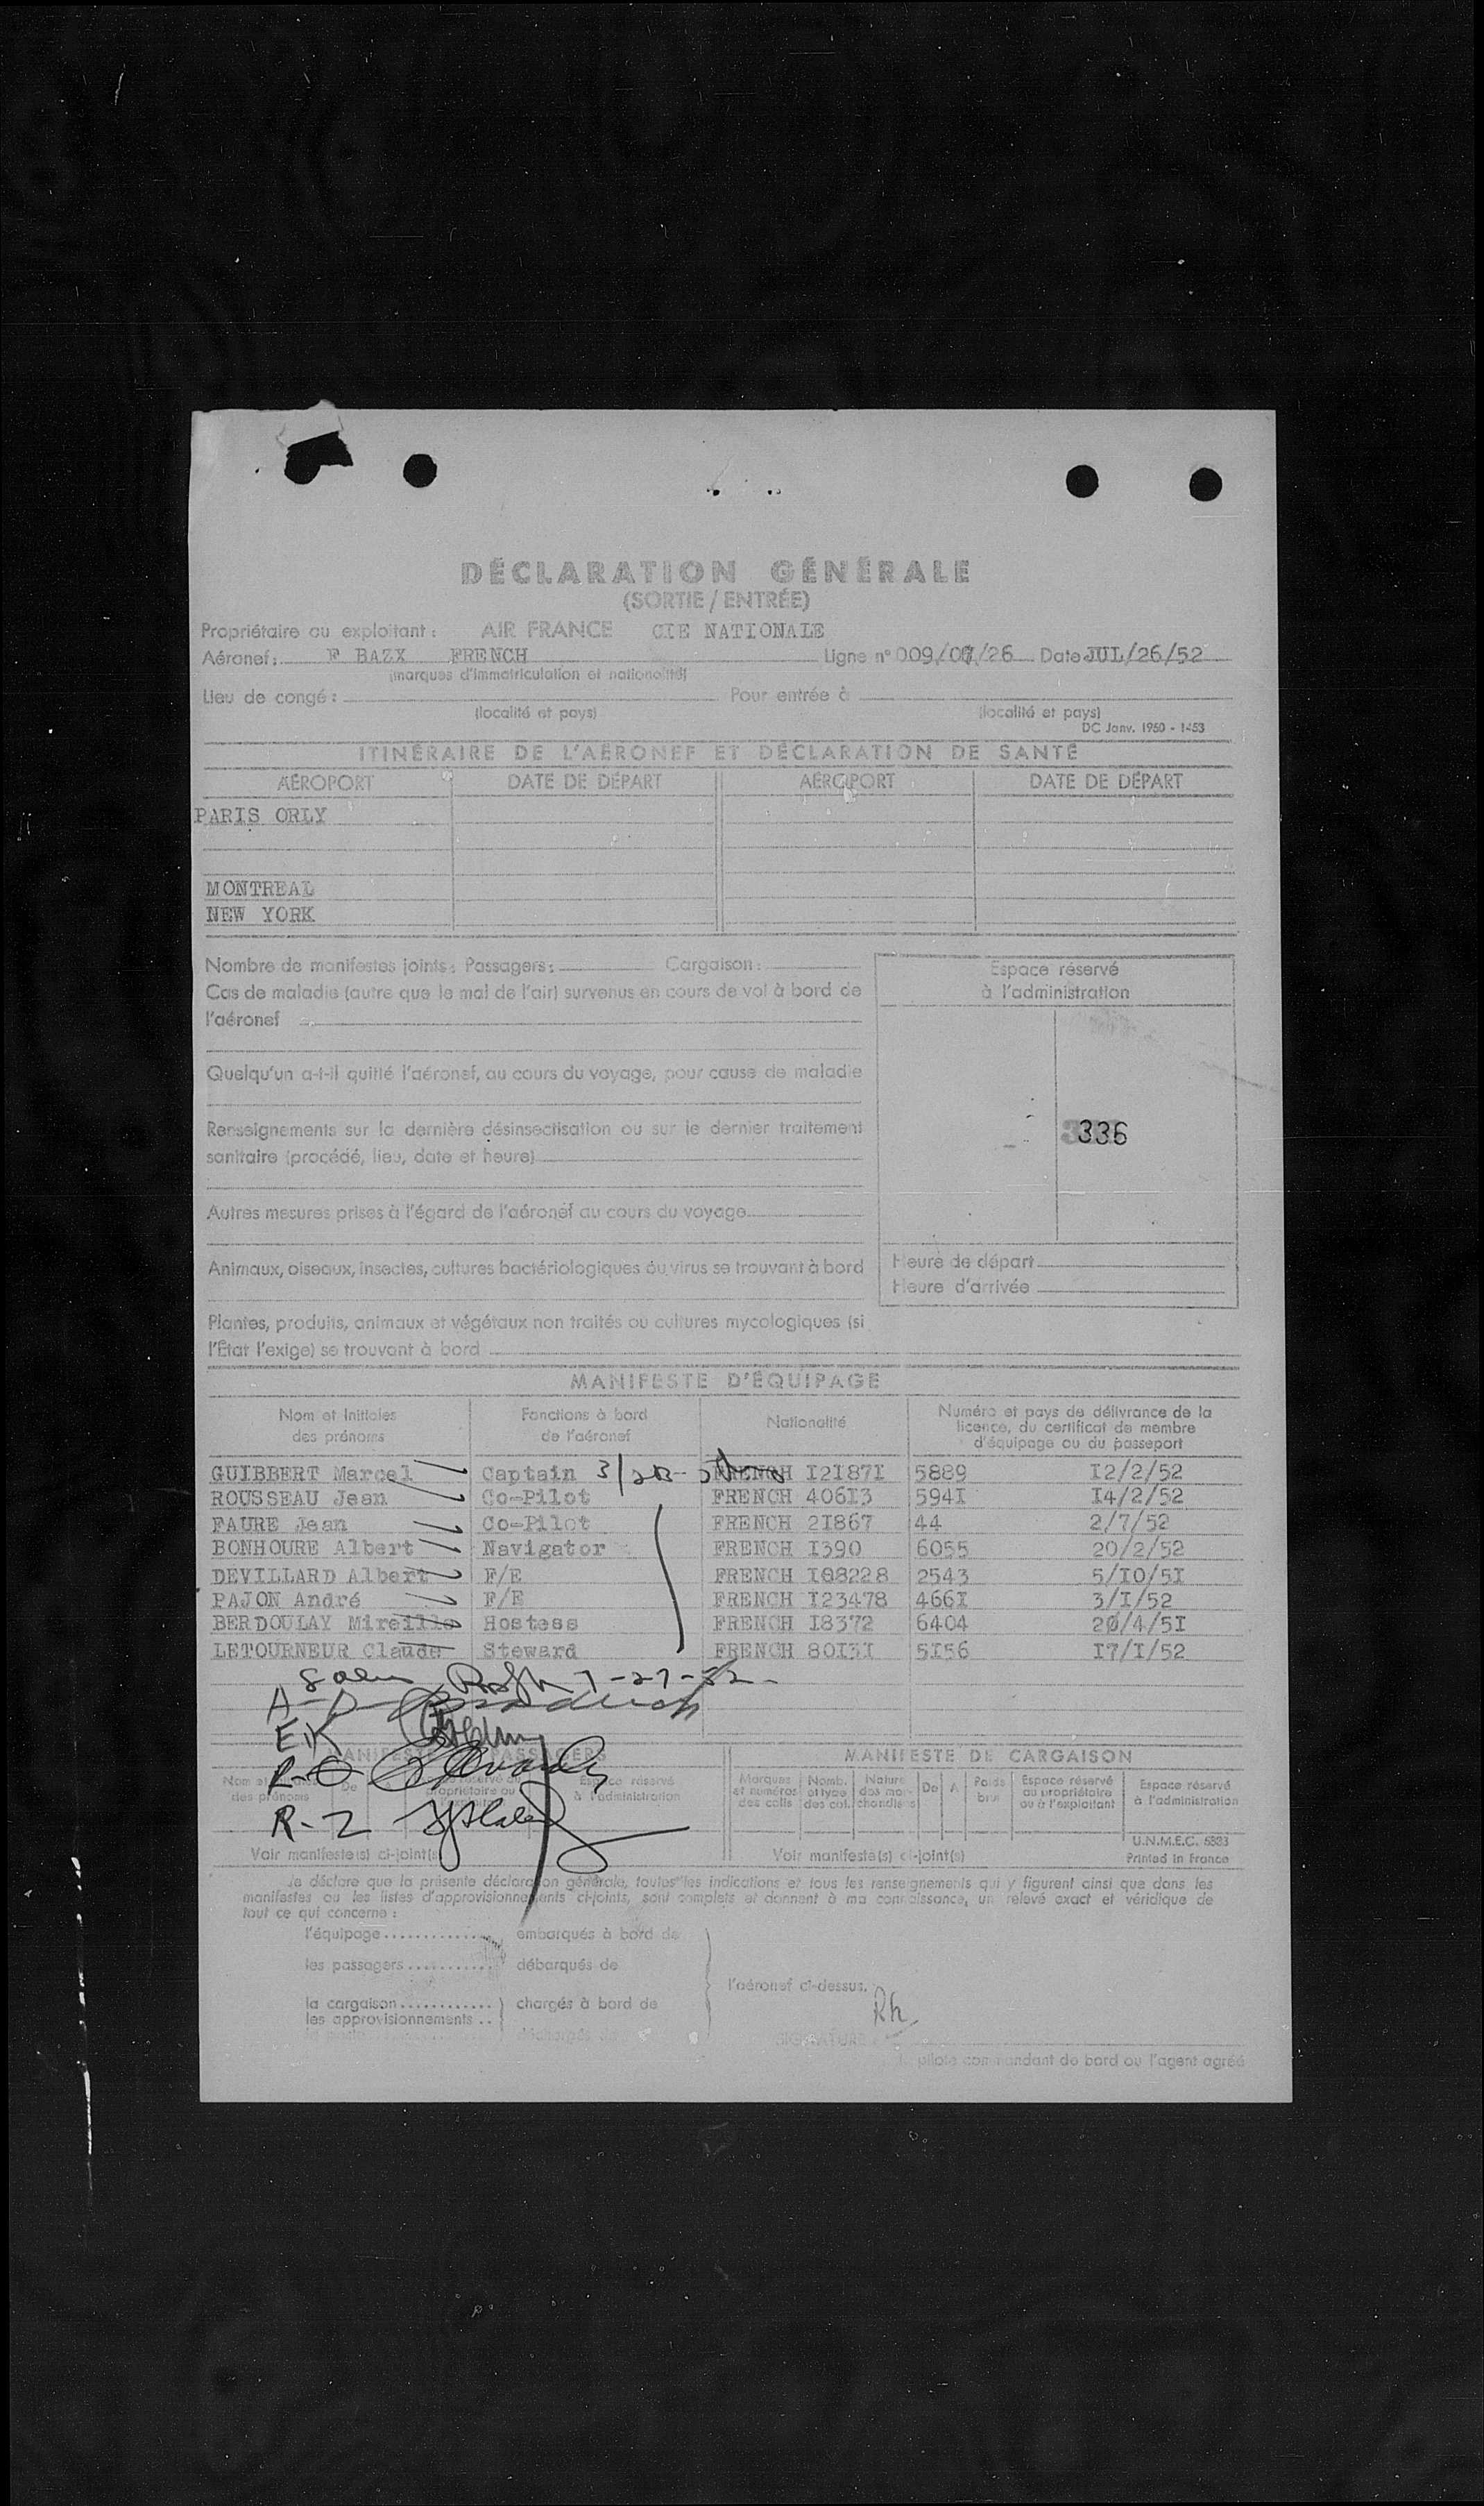 DÉCLARATION GÉNÉRALE
(SORTIE / ENTRÉE)
Propriétaire ou exploitant : AIR FRANCE CIE NATIONALE
Aéronef : F BAZX FRENCH Ligne n° 009/07/26 Date JUL/26/52
(marques d'immatriculation et nationalité)
Lieu de congé : Pour entrée à
(localité et pays) (localité et pays)
DC Janv. 1950 - 1453
ITINÉRAIRE DE L'AÉRONEF ET DÉCLARATION DE SANTÉ
AÉROPORT DATE DE DÉPART AÉROPORT DATE DE DÉPART
PARIS ORLY
MONTREAL
NEW YORK
Nombre de manifestes joints : Passagers : Cargaison :
Cas de maladie (autre que le mal de l'air) survenus en cours de vol à bord de
l'aéronef
Quelqu'un a-t-il quitté l'aéronef, au cours du voyage, pour cause de maladie
Renseignements sur la dernière désinsectisation ou sur le dernier traitement
sanitaire (procédé, lieu, date et heure)
Autres mesures prises à l'égard de l'aéronef au cours du voyage
Animaux, oiseaux, insectes, cultures bactériologiques ou virus se trouvant à bord
Plantes, produits, animaux et végétaux non traités ou cultures mycologiques (si
l'État l'exige) se trouvant à bord
Espace réservé
à l'administration
336
Heure de départ
Heure d'arrivée
MANIFESTE D'ÉQUIPAGE
Nom et Initiales des prénoms Fonctions à bord de l'aéronef Nationalité Numéro et pays de délivrance de la licence, du certificat de membre d'équipage ou du passeport
GUIBBERT Marcel Captain FRENCH I2I87I 5889 I2/2/52
ROUSSEAU Jean Co-Pilot FRENCH 406I3 594I I4/2/52
FAURE Jean Co-Pilot FRENCH 2I867 44 2/7/52
BONHOURE Albert Navigator FRENCH I390 6055 20/2/52
DEVILLARD Albert F/E FRENCH I08228 2543 5/I0/5I
PAJON André F/E FRENCH I23478 466I 3/I/52
BERDOULAY Mireille Hostess FRENCH I8372 6404 20/4/5I
LETOURNEUR Claude Steward FRENCH 80I3I 5I56 I7/I/52
7-27-52
A-D
E.K
R-O
R-2
MANIFESTE DE PASSAGERS
Nom et des prénoms De Espace réservé au propriétaire ou Espace réservé à l'administration
Voir manifeste(s) ci-joint(s)
MANIFESTE DE CARGAISON
Marques et numéros des colis Nomb. et type des col. Nature des marchandises De A Poids brut Espace réservé au propriétaire ou à l'exploitant Espace réservé à l'administration
U.N.M.E.C. 6883
Voir manifeste(s) ci-joint(s) Printed in France
Je déclare que la présente déclaration générale, toutes les indications et tous les renseignements qui y figurent ainsi que dans les
manifestes ou les listes d'approvisionnements ci-joints, sont complets et donnent à ma connaissance, un relevé exact et véridique de
tout ce qui concerne :
l'équipage embarqués à bord de
les passagers débarqués de
l'aéronef ci-dessus.
la cargaison chargés à bord de
les approvisionnements
déchargés de
Rh
SIGNATURE
pilote commandant de bord ou l'agent agréé